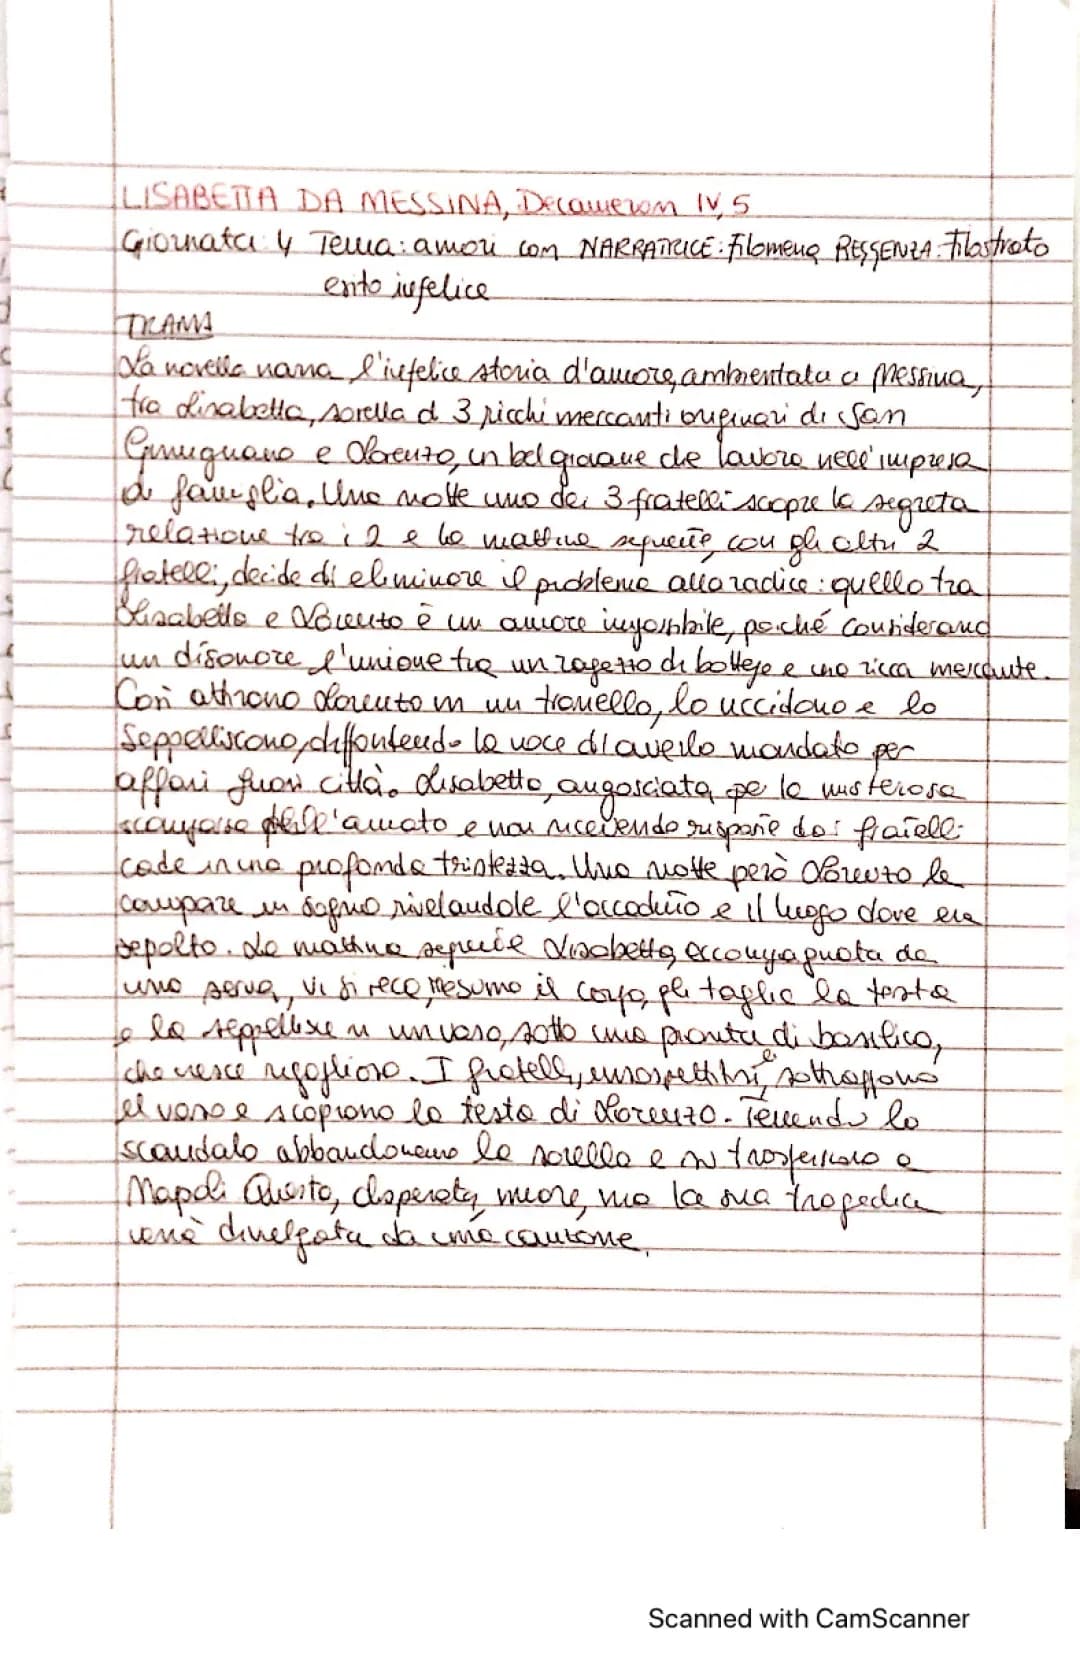 LISABETTA DA MESSINA, Decameron IV, 5
Giornata 4 Tema: amori con NARRATRICE: Filomena REGGENZA: Filostrato
esito infelice
TRAMA
La novella narra l'infelice storia d'amore, ambientata a Messina,
tra Lisabetta, sorella di 3 ricchi mercanti originari di San
Gimignano e Lorenzo, un bel giovane che lavora nell'impresa
di famiglia. Una notte uno dei 3 fratelli scopre la segreta
relazione tra i 2 e la mattina seguente, con gli altri 2
fratelli, decide di eliminare il problema alla radice: quello tra
Lisabetta e Lorenzo è un amore impossibile, poiché considerano
un disonore l'unione tra un ragazzo di bottega e una ricca mercante.
Così attirano Lorenzo in un tranello, lo uccidono e lo
seppelliscono, diffondendo la voce di averlo mandato per
affari fuori città. Lisabetta, angosciata per la misteriosa
scomparsa dell'amato e non ricevendo risposte dai fratelli
cade in una profonda tristezza. Una notte però Lorenzo le
compare in sogno rivelandole l'accaduto e il luogo dove era
sepolto. La mattina seguente Lisabetta, accompagnata da
una serva, vi si reca, riesuma il corpo, gli taglia la testa
e la seppellisce in un vaso, sotto una pianta di basilico,
che cresce rigoglioso. I fratelli, insospettitisi, sottraggono
il vaso e scoprono la testa di Lorenzo. Temendo lo
scandalo abbandonano la sorella e si trasferiscono a
Napoli. Questa, disperata, muore, ma la sua tragedia
verrà divulgata da una canzone.
Scanned with CamScanner